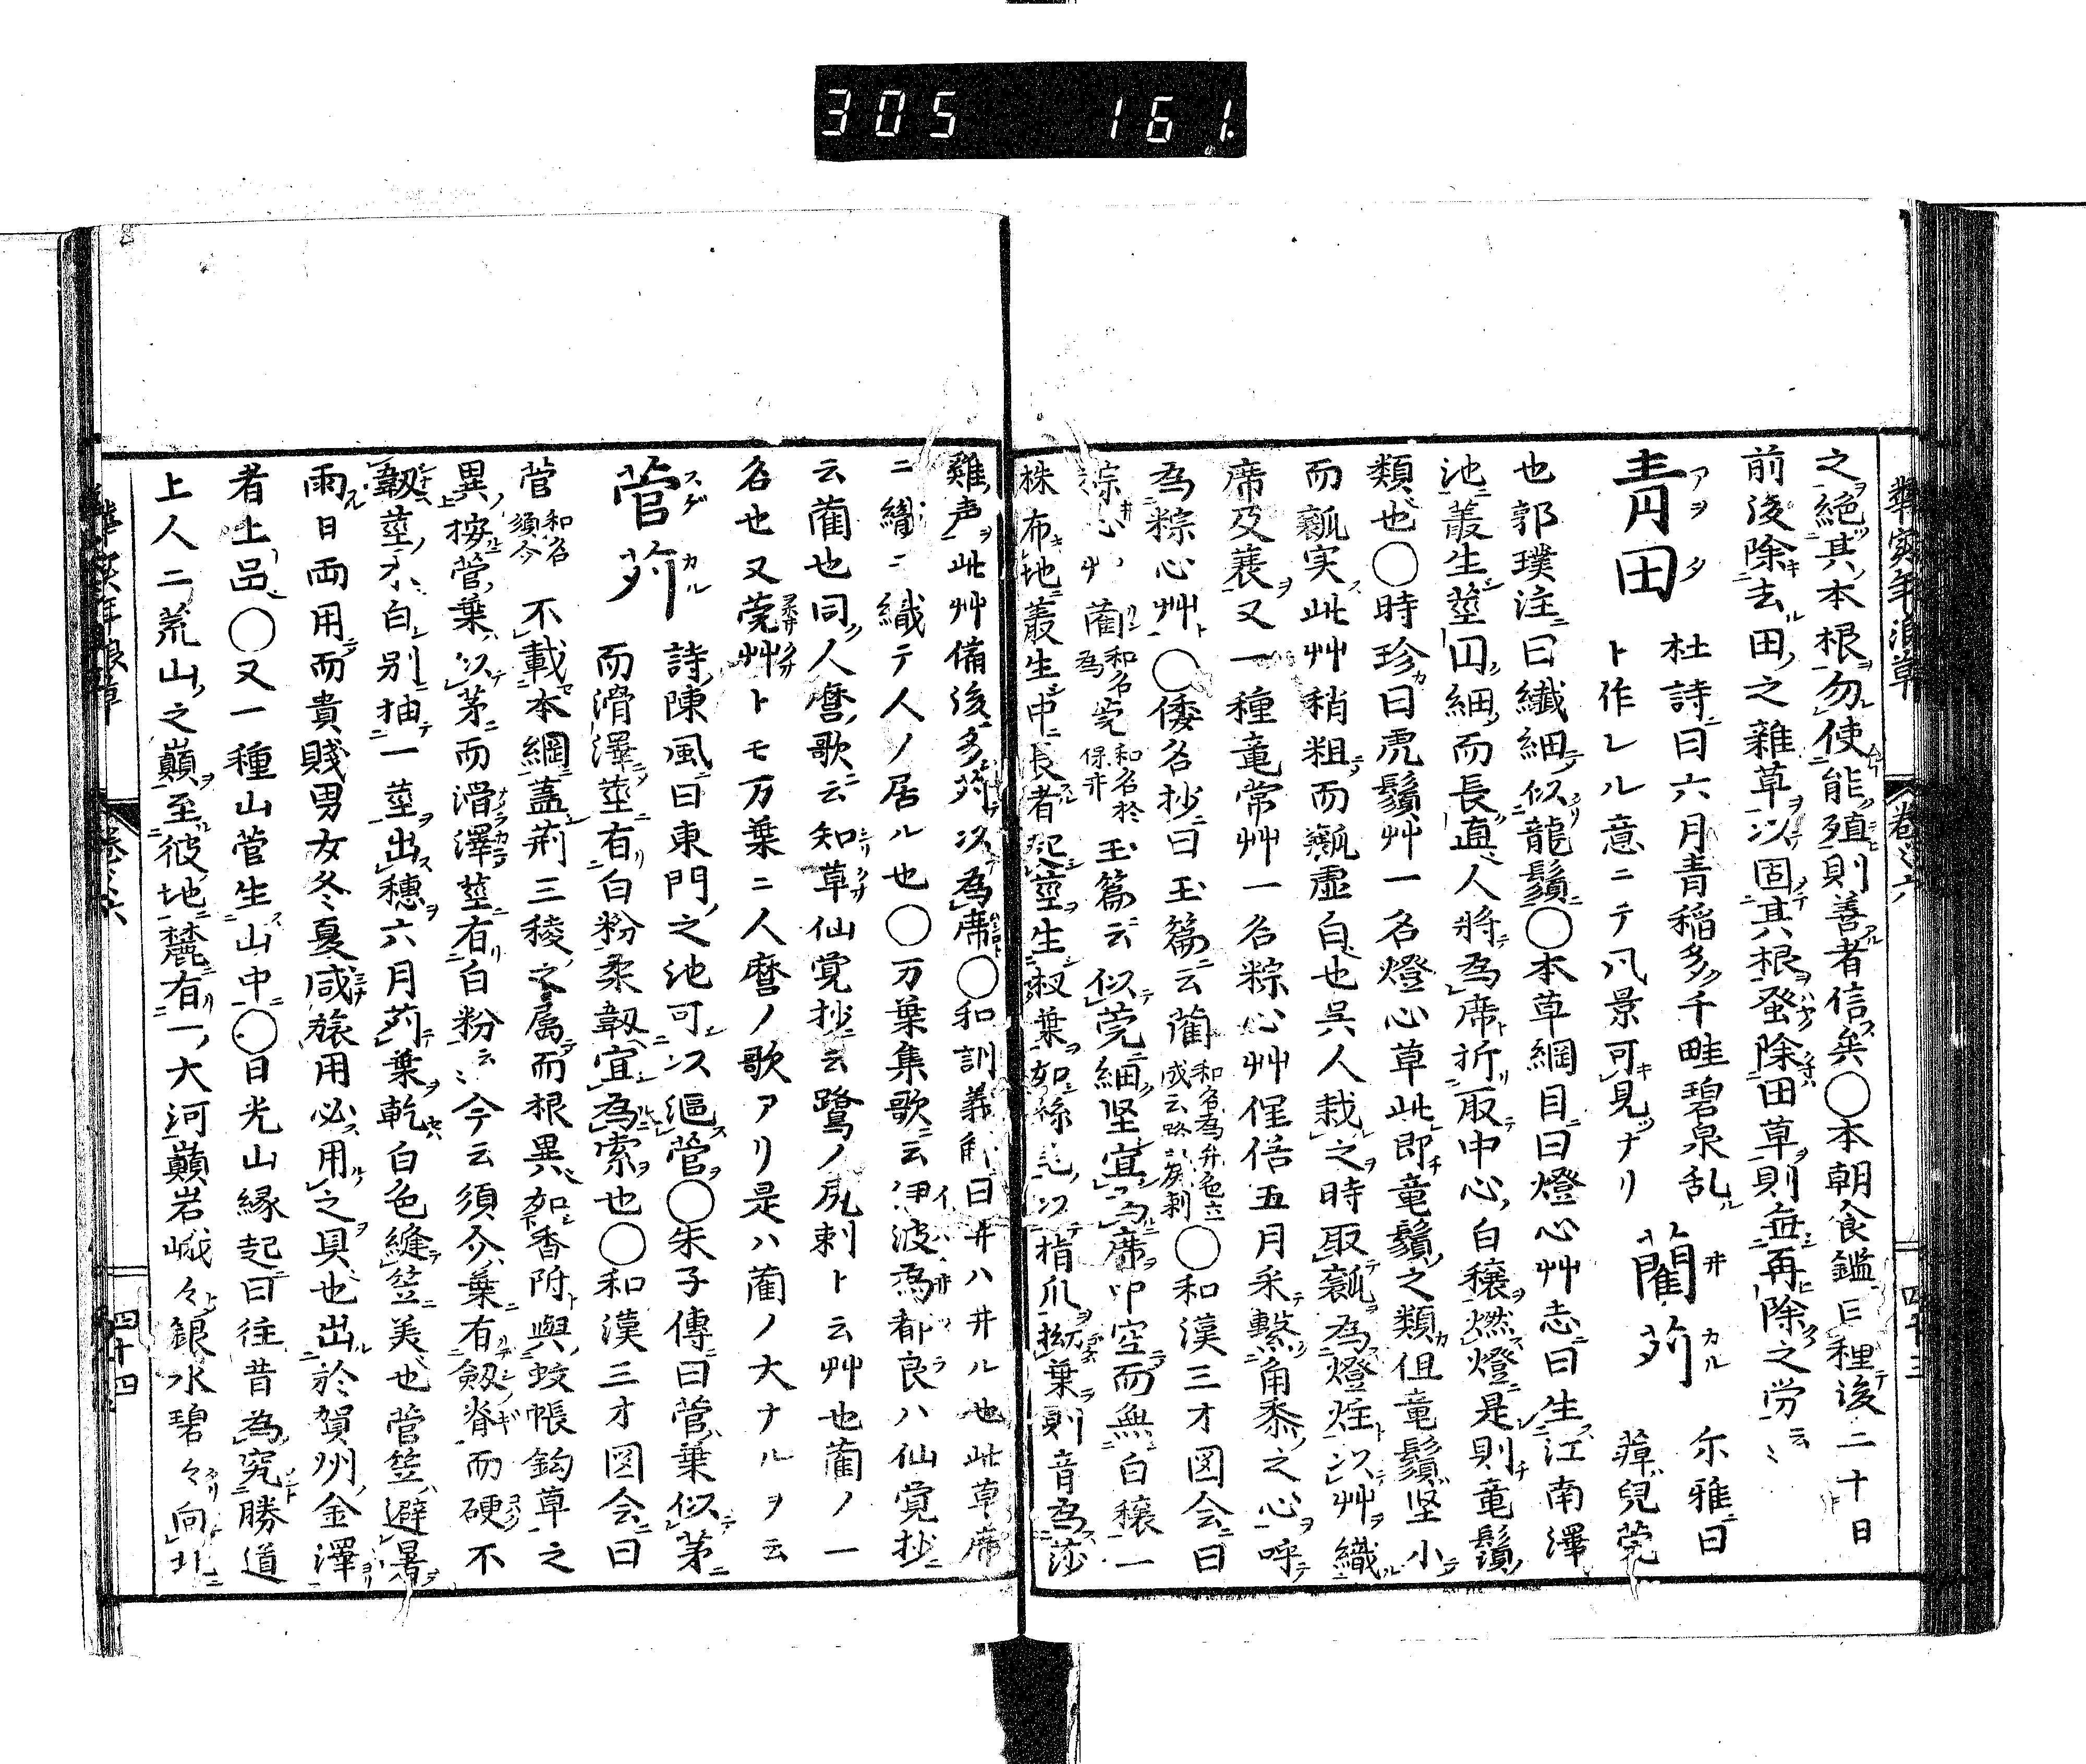 305 161
華実年浪草 巻之六 四十三
之絶其本根勿使能殖則善者信矣〇本朝食鑑曰種後二十日
前後除去田之雜草以固其根蚤除田草則無再除之労云〻
青田 アヲタ 杜詩曰六月青稲多千畦碧泉乱
ト作レル意ニテ風景可見ナリ
藺苅 井カル 尓雅曰䔂鼠莞
也郭璞注曰纖細似龍鬚〇本草綱目曰燈心艸志曰生江南澤
池叢生莖圓細而長直人將為席折取中心白穣燃燈是則竜鬚
類也〇時珍曰虎鬚艸一名燈心草此即竜鬚之類但竜鬚堅小
而瓤実此艸稍粗而瓤虚白也呉人栽之時取瓤為燈炷以艸織
席及蓑又一種竜常艸一名粽心艸俚俗五月采繋角黍之心呼
為粽心艸〇倭名抄曰玉篇云藺 〇和漢三才図会曰
粽心艸藺 和名為 莞 和名於保井 玉篇云似莞細堅宜為席中空而無白穣一
株布地叢生中長者起莖生杈葉如絲以指爪拗葉則音為莎
雞声此艸備後多苅以為席〇和訓義解曰井ハ井ル也此草席
ニ織テ人ノ居ル也〇万葉集歌云伊波為都良ハ仙覚抄
云藺也同人麿歌云知草仙覚抄云鷺ノ尻刺ト云艸也藺ノ一
名也又莞艸トモ万葉ニ人麿ノ歌アリ是ハ藺ノ大ナルヲ云
菅苅 スゲカル 詩陳風曰東門之池可以漚菅〇朱子傳曰菅葉似茅
而滑澤莖有白粉柔韌宜為索也〇和漢三才図会曰
菅 和名須介 不載本綱蓋荊三稜之属而根異如香附與蚊帳鈎草之
異按菅葉以茅而滑澤莖有白粉云〻今云須介葉有剱脊而硬不
韌莖不白別抽一莖出穗六月苅葉乾白色縫笠美也菅笠避暑
雨日両用而貴賤男女冬夏咸旅用必用之具也出於賀州金澤
者上品〇又一種山菅生山中〇日光山縁起曰往昔為究勝道
上人二荒山之巓至彼地麓有一大河巓岩峨々銀水碧々向北
華実年浪草 巻之六 四十四